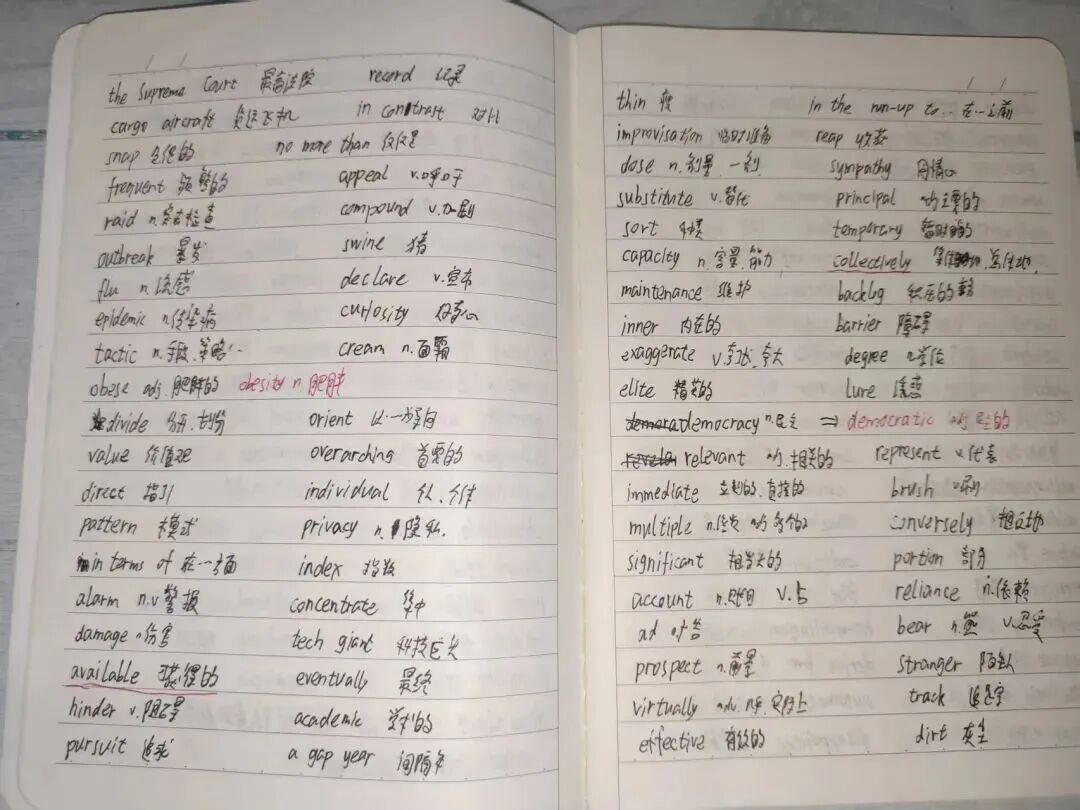 the Supreme Court 最高法院 record 记录
cargo aircraft 货运飞机 in contrast 对比
snap 仓促的 no more than 仅仅是
frequent 频繁的 appeal v.呼吁
raid n.突击检查 compound v.加剧
outbreak 暴发 swine 猪
flu n.流感 declare v.宣布
epidemic n.传染病 curiosity 好奇心
tactic n.手段.策略 cream n.面霜
obese adj.肥胖的 obesity n.肥胖
divide 分开.划分 orient 以…为导向
value 价值观 overarching 首要的
direct 指引 individual 个人.个体
pattern 模式 privacy n.隐私.
in terms of 在…方面 index 指数
alarm n.v 警报 concentrate 集中
damage 伤害 tech giant 科技巨头
available 获得的 eventually 最终
hinder v.阻碍 academic 学术的
pursuit 追求 a gap year 间隔年
thin in the run-up to… 在…之前
improvisation 临时准备 reap 收获
dose n.剂量.一剂. sympathy 同情心
substitute v.替代 principal adj主要的
sort 种类 temporary 暂时的
capacity n.容量.能力 collectively 总体地.
maintenance 维护 backlog 积压的
inner 内在的 barrier 障碍
exaggerate v.夸大 degree n学位
elite 精英的 lure 诱惑
democracy n.民主 ⇒ democratic adj民主的
relevant adj.相关的 represent v.代表
immediate 立刻的.直接的 brush 刷
multiple n.倍数 adj conversely 相反地
significant 相当大的 portion 部分
account n.账目 v.占 reliance n.依赖
ad 广告 bear n.熊 v.忍受
prospect n. stranger 陌生人
virtually adv.几乎.实际上 track 追踪
effective 有效的 dirt 灰尘